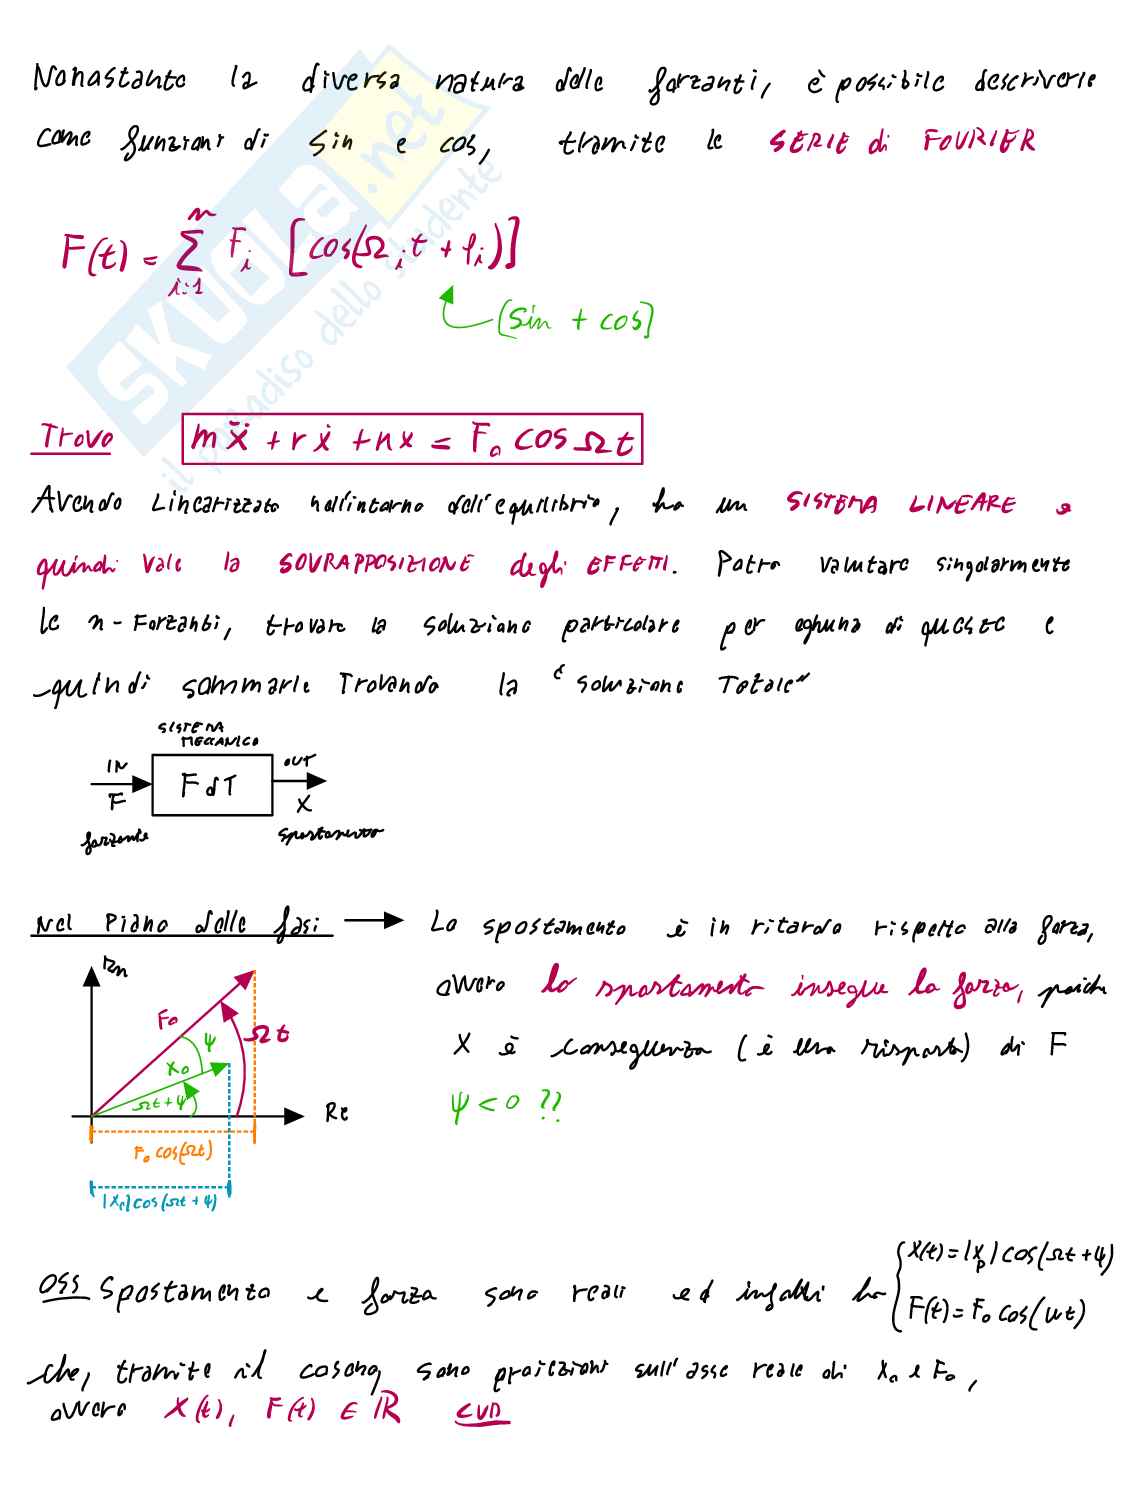 Nonostante la diversa natura delle forzanti, è possibile descriverle
come funzioni di sin e cos, tramite le SERIE di FOURIER
F(t) = Σ F_i [cos(Ω_i t + φ_i)]
n
i=1
(sin + cos)
Trovo m ẍ + r ẋ + k x = F_0 cos Ω t
Avendo Linearizzato nell'intorno dell'equilibrio, ho un SISTEMA LINEARE e
quindi vale la SOVRAPPOSIZIONE degli EFFETTI. Potrò valutare singolarmente
le n-Forzanti, trovare la soluzione particolare per ognuna di queste e
quindi sommarle Trovando la "soluzione Totale"
SISTEMA
MECCANICO
IN FdT OUT
F X
forzante spostamento
Nel Piano delle fasi → Lo spostamento è in ritardo rispetto alla forza,
ovvero lo spostamento insegue la forza, poiché
X è conseguenza (è una risposta) di F
ψ < 0 ??
Im
F_0
Ωt
ψ
X_0
Ωt+ψ
Re
F_0 cos(Ωt)
|X_0| cos(Ωt+ψ)
OSS Spostamento e forza sono reali ed infatti ho { X(t) = |X_p| cos(Ωt+ψ)
F(t) = F_0 cos(ωt)
che, tramite il coseno, sono proiezioni sull'asse reale di X_0 e F_0,
ovvero X(t), F(t) ∈ ℝ CVD
SKUOLA.net
il paradiso dello studente